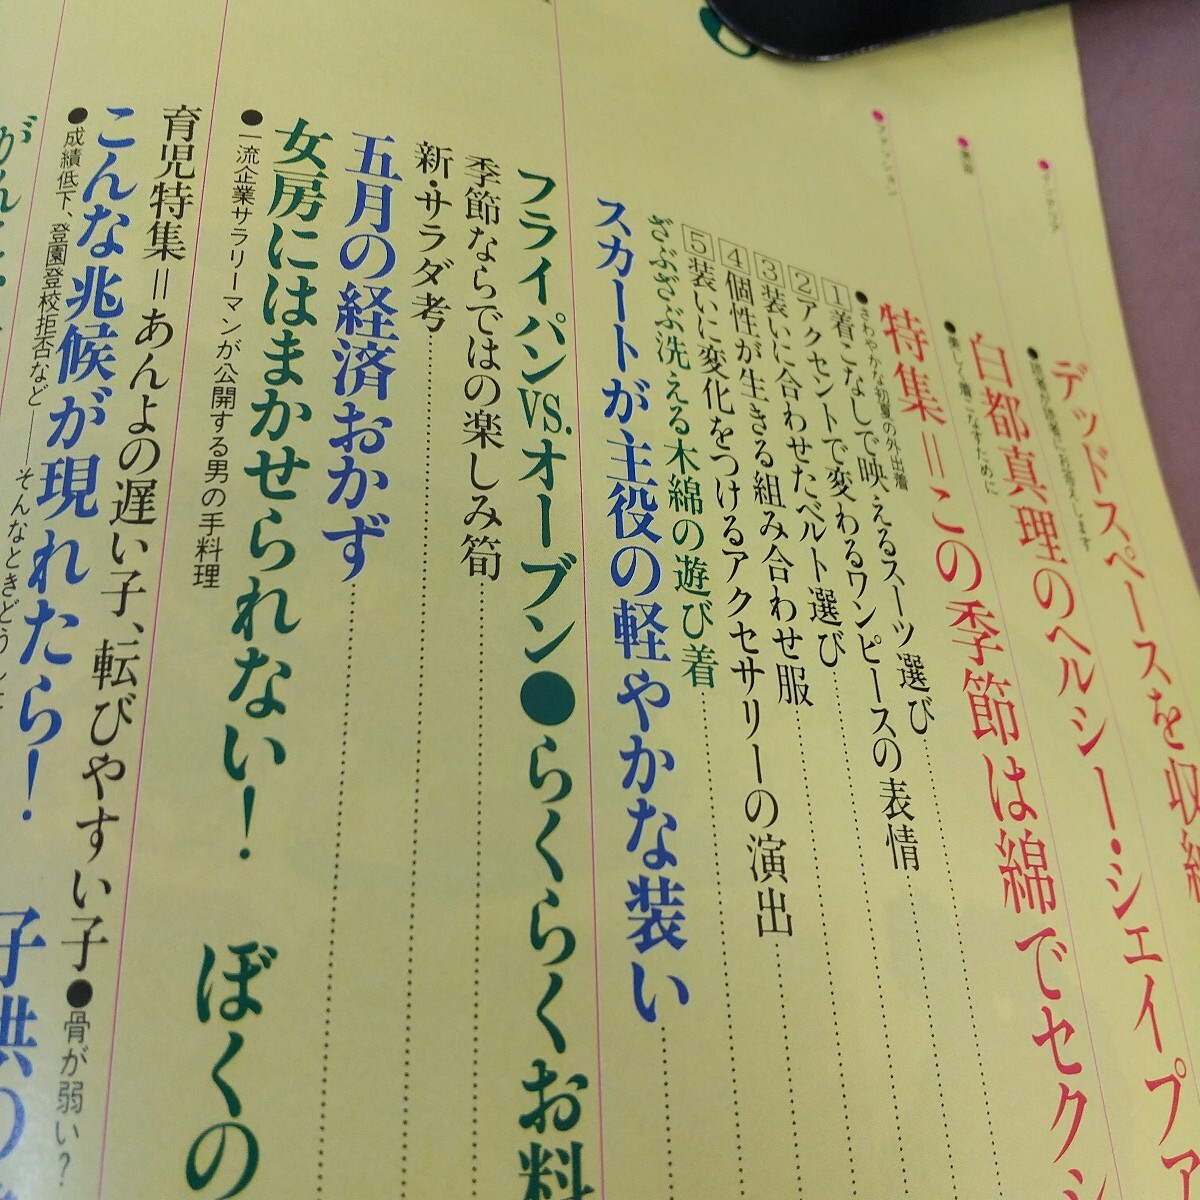 ●インテリア
デッドスペースを収納
●読者が読者にお答えします
●美容
白都真理のヘルシー・シェイプア
●美しく着こなすために
●ファッション
特集＝この季節は綿でセクシ
●さわやかな初夏の外出着
1着こなしで映えるスーツ選び
2アクセントで変わるワンピースの表情
3装いに合わせたベルト選び
4個性が生きる組み合わせ服
5装いに変化をつけるアクセサリーの演出
ざぶざぶ洗える木綿の遊び着
スカートが主役の軽やかな装い
フライパンVS.オーブン●らくらくお料
季節ならではの楽しみ筍
新・サラダ考
五月の経済おかず
女房にはまかせられない！　ぼくの
●一流企業サラリーマンが公開する男の手料理
育児特集＝あんよの遅い子、転びやすい子●骨が弱い？
こんな兆候が現れたら！　子供の
●成績低下、登園登校拒否など──そんなときどう